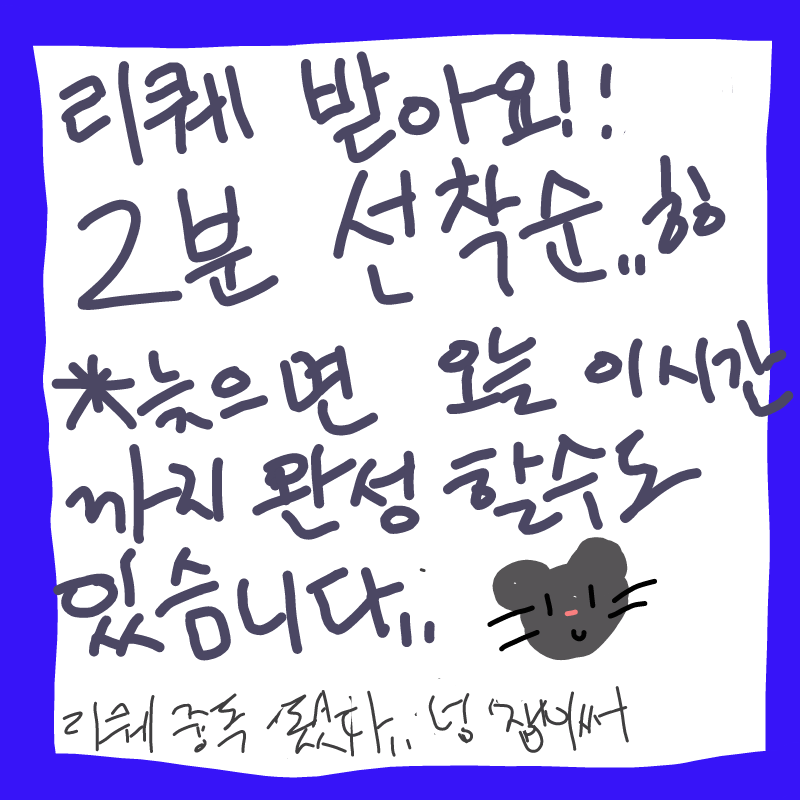 리퀘 받아요!!
2분 선착순,,힝
*늦으면 오늘 이시간
까지 완성 할수도
있습니다,,
리퀘 중독 됐다,, 넝 잼이써